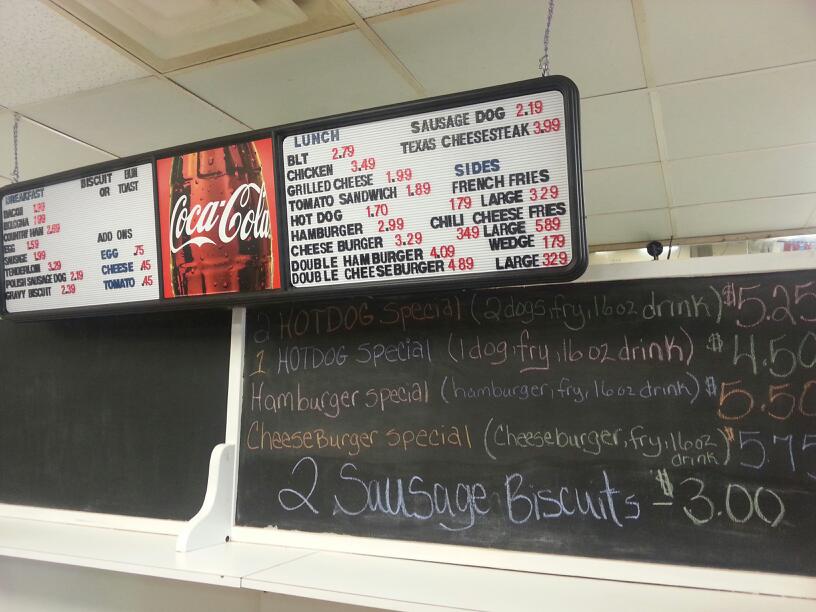 BREAKFAST
BISCUIT BUN
OR TOAST
BACON 1.99
BOLOGNA 1.99
COUNTRY HAM 2.69
EGG 1.59
SAUSGE 1.99
TENDERLOIN 3.29
POLISH SAUSAGE DOG 2.19
GRAVY BISCUIT 2.39
ADD ONS
EGG .75
CHEESE .45
TOMATO .45
Coca-Cola
LUNCH
BLT 2.79
CHICKEN 3.49
GRILLED CHEESE 1.99
TOMATO SANDWICH 1.89
HOT DOG 1.70
HAMBURGER 2.99
CHEESE BURGER 3.29
DOUBLE HAMBURGER 4.09
DOUBLE CHEESEBURGER 4.89
SAUSAGE DOG 2.19
TEXAS CHEESESTEAK 3.99
SIDES
FRENCH FRIES
179 LARGE 329
CHILI CHEESE FRIES
349 LARGE 589
WEDGE 179
LARGE 329
2 HOTDOG special (2 dogs, fry, 16 oz drink) $5.25
1 HOTDOG special (1 dog, fry, 16 oz drink) $4.50
Hamburger special (hamburger, fry, 16 oz drink) $5.50
CheeseBurger special (Cheeseburger, fry, 16 oz drink) $5.75
2 Sausage Biscuits - $3.00